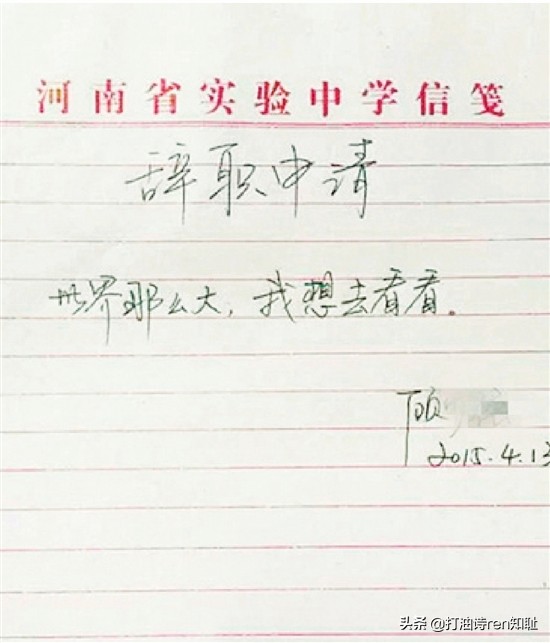 河南省实验中学信笺
辞职申请
世界那么大，我想去看看。
顾
2015.4.13
头条@打油诗ren知耻